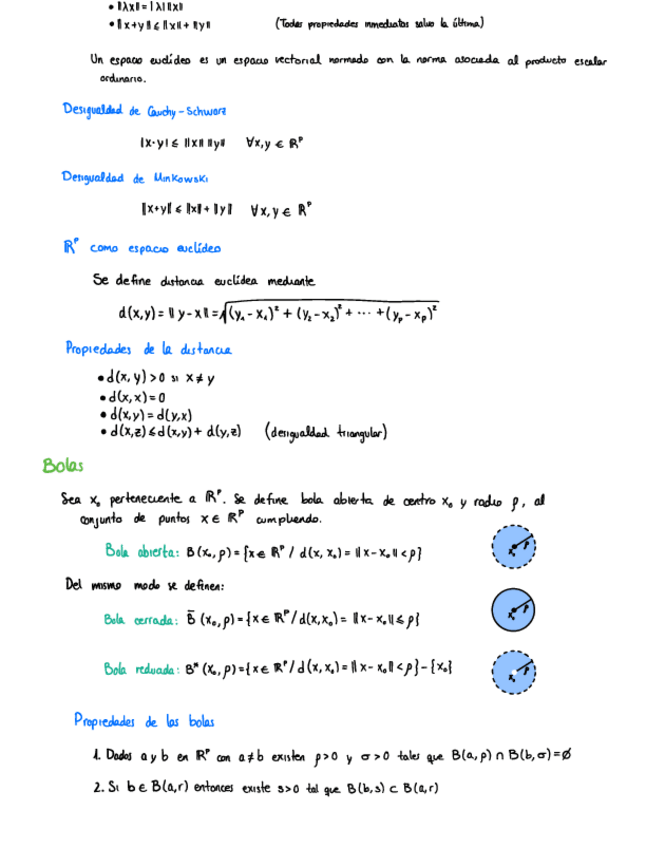 • ‖λx‖ = |λ| ‖x‖
• ‖x+y‖ ≤ ‖x‖ + ‖y‖ (Todas propiedades inmediatas salvo la última)
Un espacio euclídeo es un espacio vectorial normado con la norma asociada al producto escalar
ordinario.
Desigualdad de Cauchy-Schwarz
|x·y| ≤ ‖x‖ ‖y‖ ∀x,y ∈ ℝᵖ
Desigualdad de Minkowski
‖x+y‖ ≤ ‖x‖ + ‖y‖ ∀x,y ∈ ℝᵖ
ℝᵖ como espacio euclídeo
Se define distancia euclídea mediante
d(x,y) = ‖y-x‖ = √((y₁-x₁)² + (y₂-x₂)² + ··· + (yₚ-xₚ)²)
Propiedades de la distancia
• d(x,y) > 0 si x ≠ y
• d(x,x) = 0
• d(x,y) = d(y,x)
• d(x,z) ≤ d(x,y) + d(y,z) (desigualdad triangular)
Bolas
Sea x₀ perteneciente a ℝᵖ. Se define bola abierta de centro x₀ y radio ρ, al
conjunto de puntos x ∈ ℝᵖ cumpliendo.
Bola abierta: B(x₀,ρ) = {x ∈ ℝᵖ / d(x,x₀) = ‖x-x₀‖ < ρ} x₀ ρ
Del mismo modo se definen:
Bola cerrada: B̄(x₀,ρ) = {x ∈ ℝᵖ / d(x,x₀) = ‖x-x₀‖ ≤ ρ} x₀ ρ
Bola reducida: B*(x₀,ρ) = {x ∈ ℝᵖ / d(x,x₀) = ‖x-x₀‖ < ρ} - {x₀} x₀ ρ
Propiedades de las bolas
1. Dados a y b en ℝᵖ con a ≠ b existen ρ>0 y σ>0 tales que B(a,ρ) ∩ B(b,σ) = ∅
2. Si b ∈ B(a,r) entonces existe s>0 tal que B(b,s) ⊂ B(a,r)